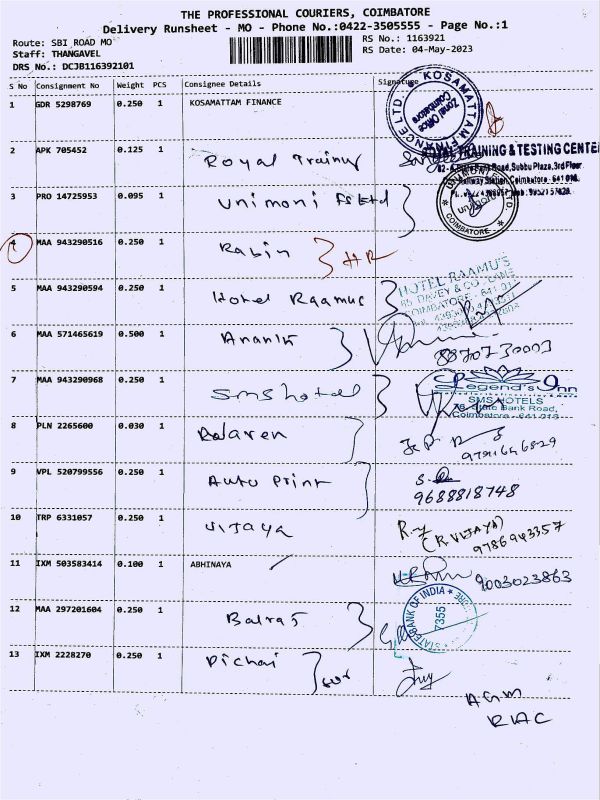 THE PROFESSIONAL COURIERS, COIMBATORE
Delivery Runsheet - MO - Phone No.:0422-3505555 - Page No.:1
Route: SBI ROAD MO
RS No.: 1163921
Staff: THANGAVEL
RS Date: 04-May-2023
DRS No.: DCJB116392101
S No Consignment No Weight PCS Consignee Details Signature
1 GDR 5298769 0.250 1 KOSAMATTAM FINANCE
KOSAMATTAM FINANCE LTD.
Zonal Office
Coimbatore
2 APK 705452 0.125 1 Royal Training
TRAINING & TESTING CENTE
Road, Subbu Plaza, 3rd Floor
Railway Station, Coimbatore - 641 018.
3 PRO 14725953 0.095 1 Unimoni FS Ltd
COIMBATORE
4 MAA 943290516 0.250 1 Rabin HR
5 MAA 943290594 0.250 1 Hotel Raamus
HOTEL RAAMU'S
DAVEY & CO - LANE
COIMBATORE - 641
6 MAA 571465619 0.500 1
8870730003
7 MAA 943290968 0.250 1 SMS hotel
Legend's Inn
SMS HOTELS
State Bank Road,
Coimbatore - 641 018
8 PLN 2265600 0.030 1
9 VPL 520799556 0.250 1 Auto Print
9688818748
10 TRP 6331057 0.250 1 Vijaya
(R.VIJAYA)
9786943357
11 IXM 503583414 0.100 1 ABHINAYA
9003023863
12 MAA 297201604 0.250 1 Balraj
STATE BANK OF INDIA
7355
13 IXM 2228270 0.250 1 Pichai
AGM
RIAC